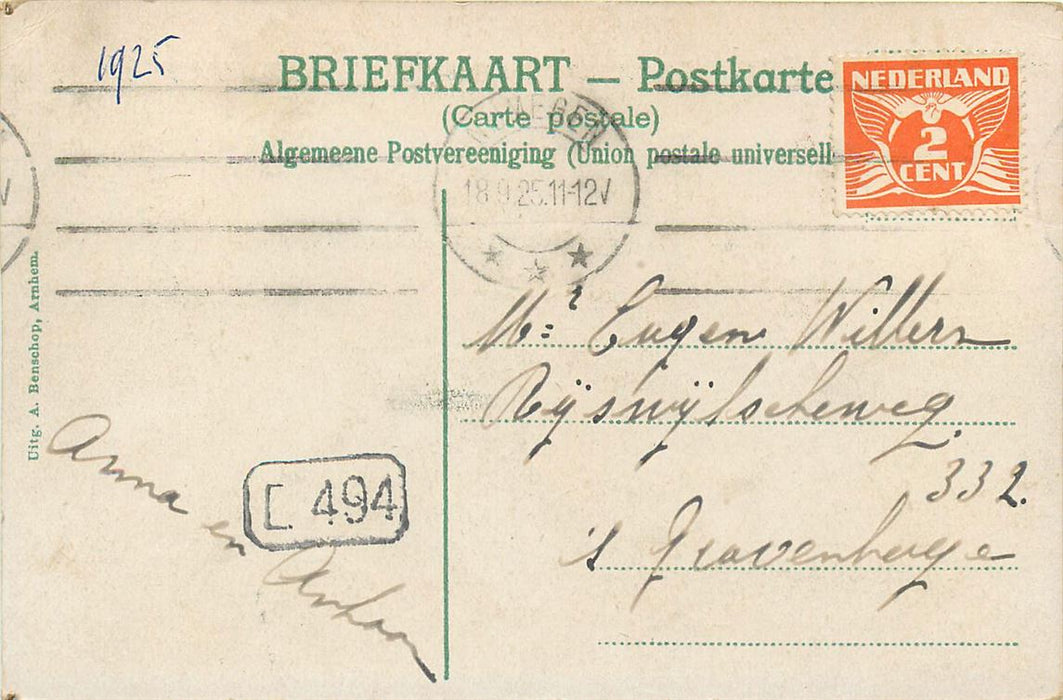 1925
BRIEFKAART — Postkarte
(Carte postale)
Algemeene Postvereeniging (Union postale universell
NEDERLAND
2
CENT
18.9.25.11-12V
V
Uitg. A. Benschop, Arnhem.
Mr. Eugen Willern
Rijswijkscheweg.
332.
's Gravenhage
Anna en
C. 494